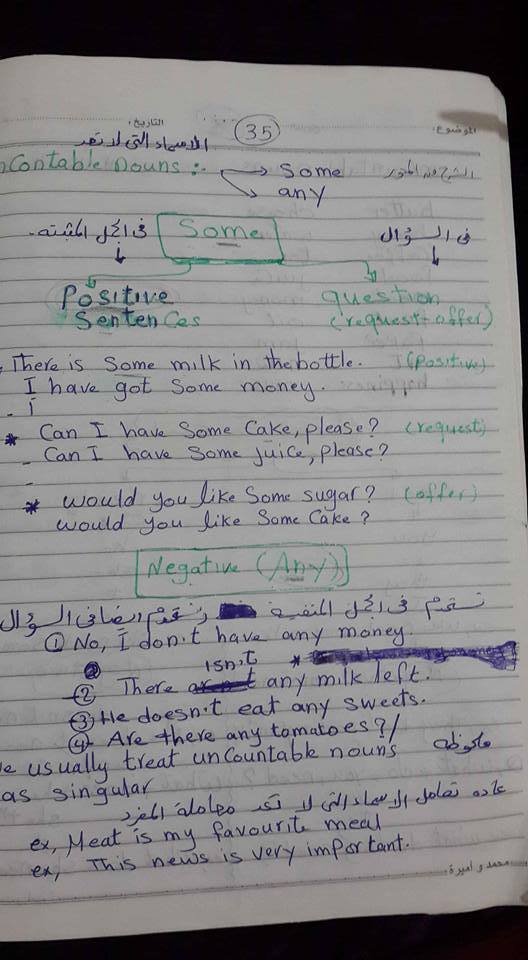 الموضوع: 35 التاريخ:
الاسماء التى لا تعد
ncontable nouns :- some
any
فى السؤال Some فى الجمل المثبته
Positive question
Sentences (request + offer)
There is Some milk in the bottle. (positive)
I have got Some money.
* Can I have Some Cake, please? (request)
- Can I have Some juice, please?
* would you like Some sugar? (offer)
would you like Some Cake?
Negative (Any)
تستخدم فى الجمل المنفية وتستخدم ايضا فى السؤال
① No, I don't have any money.
isn't
② There any milk left.
③ He doesn't eat any sweets.
④ Are there any tomatoes?/
e usually treat uncountable nouns ملحوظه
as singular
عاده تعامل الاسماء التى لا تعد معاملة المفرد
ex, Meat is my favourite meal
ex, This news is very important.
محمد و أميرة